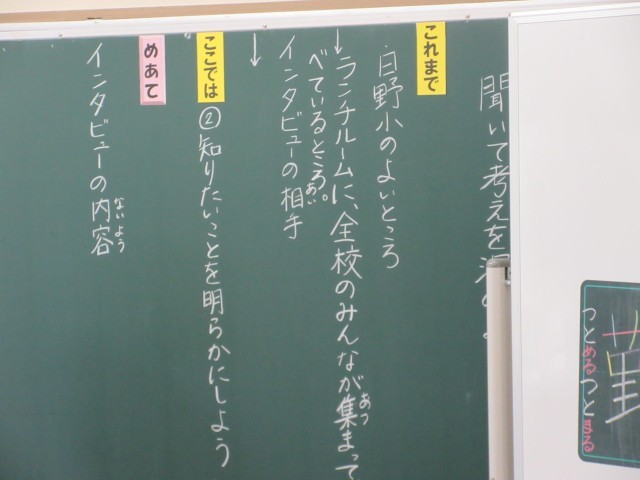 つとめるつとまる
聞いて考えを
これまで
白野小のよいところ
↓
ランチルームに、全校のみんなが集まって
あつ
べているところ。
インタビューの相手
あい
↓
ここでは
②知りたいことを明らかにしよう
めあて
インタビューの内容
ないよう